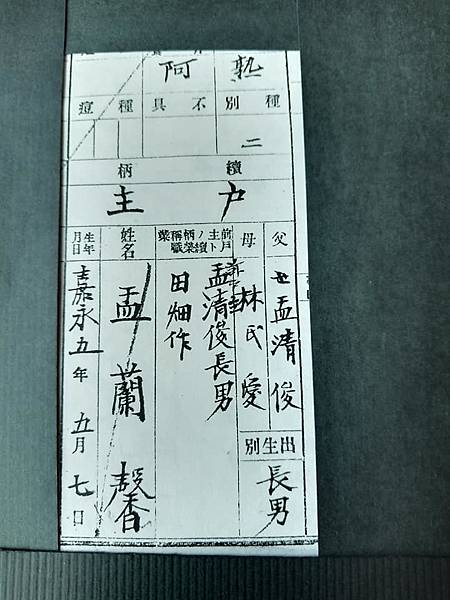 熟 阿
種別
不具
種痘
二
續柄
户主
父
孟清俊
母
林氏愛
出生別
長男
前戶主トノ續柄榮稱職業
孟清俊長男
田畑作
姓名
孟蘭馨
生年月日
嘉永五年五月七日